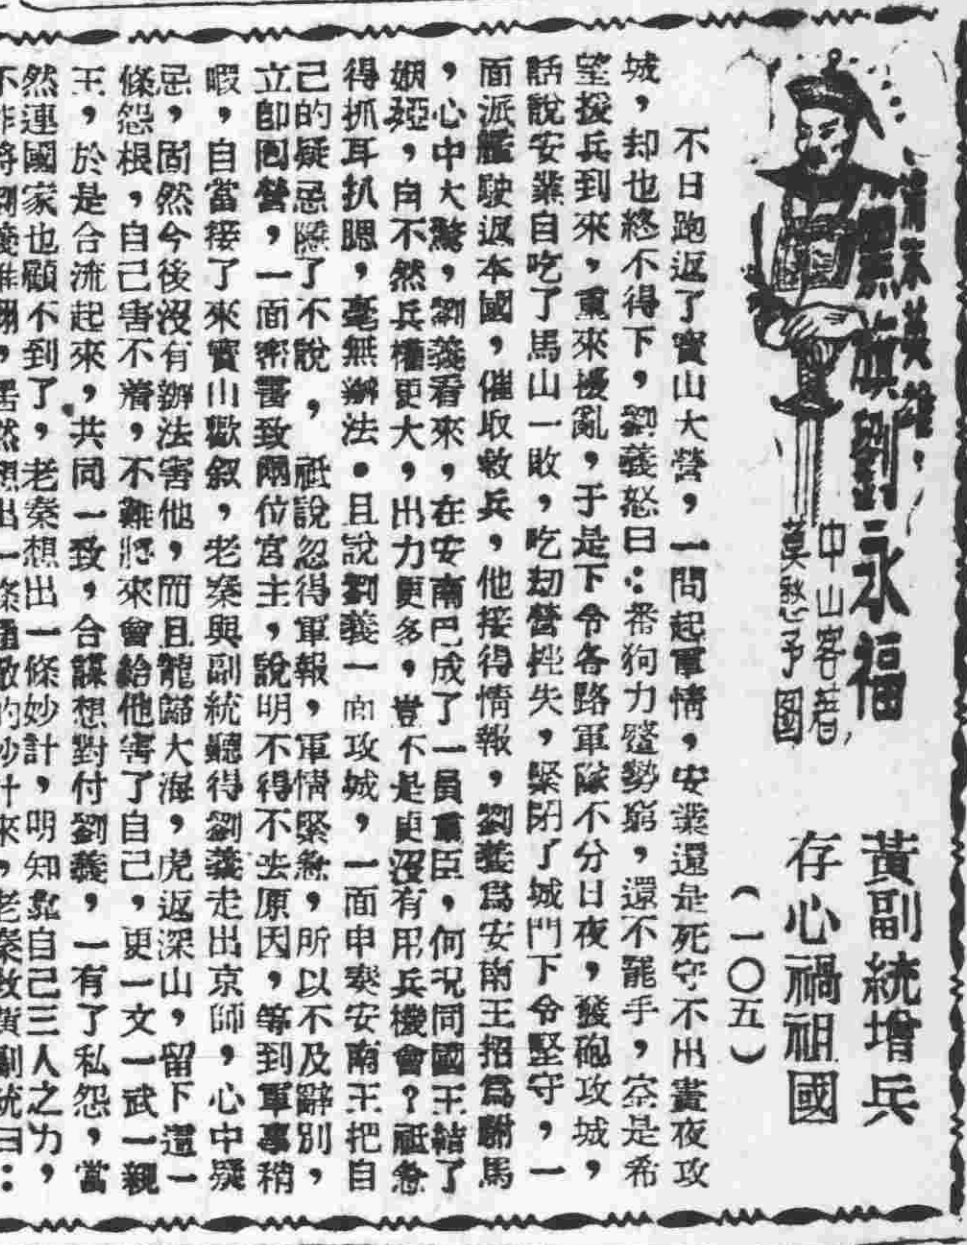 清末英雄，
黑旗劉永福
中山客著，
莫愁予圖
黃副統增兵
存心禍祖國
（一〇五）
不日跑返了寳山大營，一問起軍情，安業還是死守不出晝夜攻
城，却也終不得下，劉義怒曰：番狗力蹙勢窮，還不罷手，定是希
望援兵到來，重來擾亂，于是下令各路軍隊不分日夜，發砲攻城，
話說安業自吃了馬山一敗，吃刧營挫失，緊閉了城門下令堅守，一
面派艦駛返本國，催取救兵，他接得情報，劉義爲安南王招爲駙馬
，心中大驚，劉義看來，在安南巳成了一員重臣，何况同國王結了
姻婭，自不然兵權更大，出力更多，豈不是更沒有用兵機會？祗急
得抓耳扒腮，毫無辦法。且說劉義一面攻城，一面申奏安南王把自
己的疑忌隱了不說，祗說忽得軍報，軍情緊急，所以不及辭別，
立卽囘營，一面密書致兩位宮主，說明不得不去原因，等到軍事稍
暇，自當接了來寳山歡叙，老秦與副統聽得劉義走出京師，心中疑
忌，固然今後沒有辦法害他，而且龍歸大海，虎返深山，留下這一
條怨根，自己害不着，不難將來會給他害了自己，更一文一武一親
王，於是合流起來，共同一致，合謀想對付劉義，一有了私怨，當
然連國家也顧不到了，老秦想出一條妙計，明知靠自己三人之力，